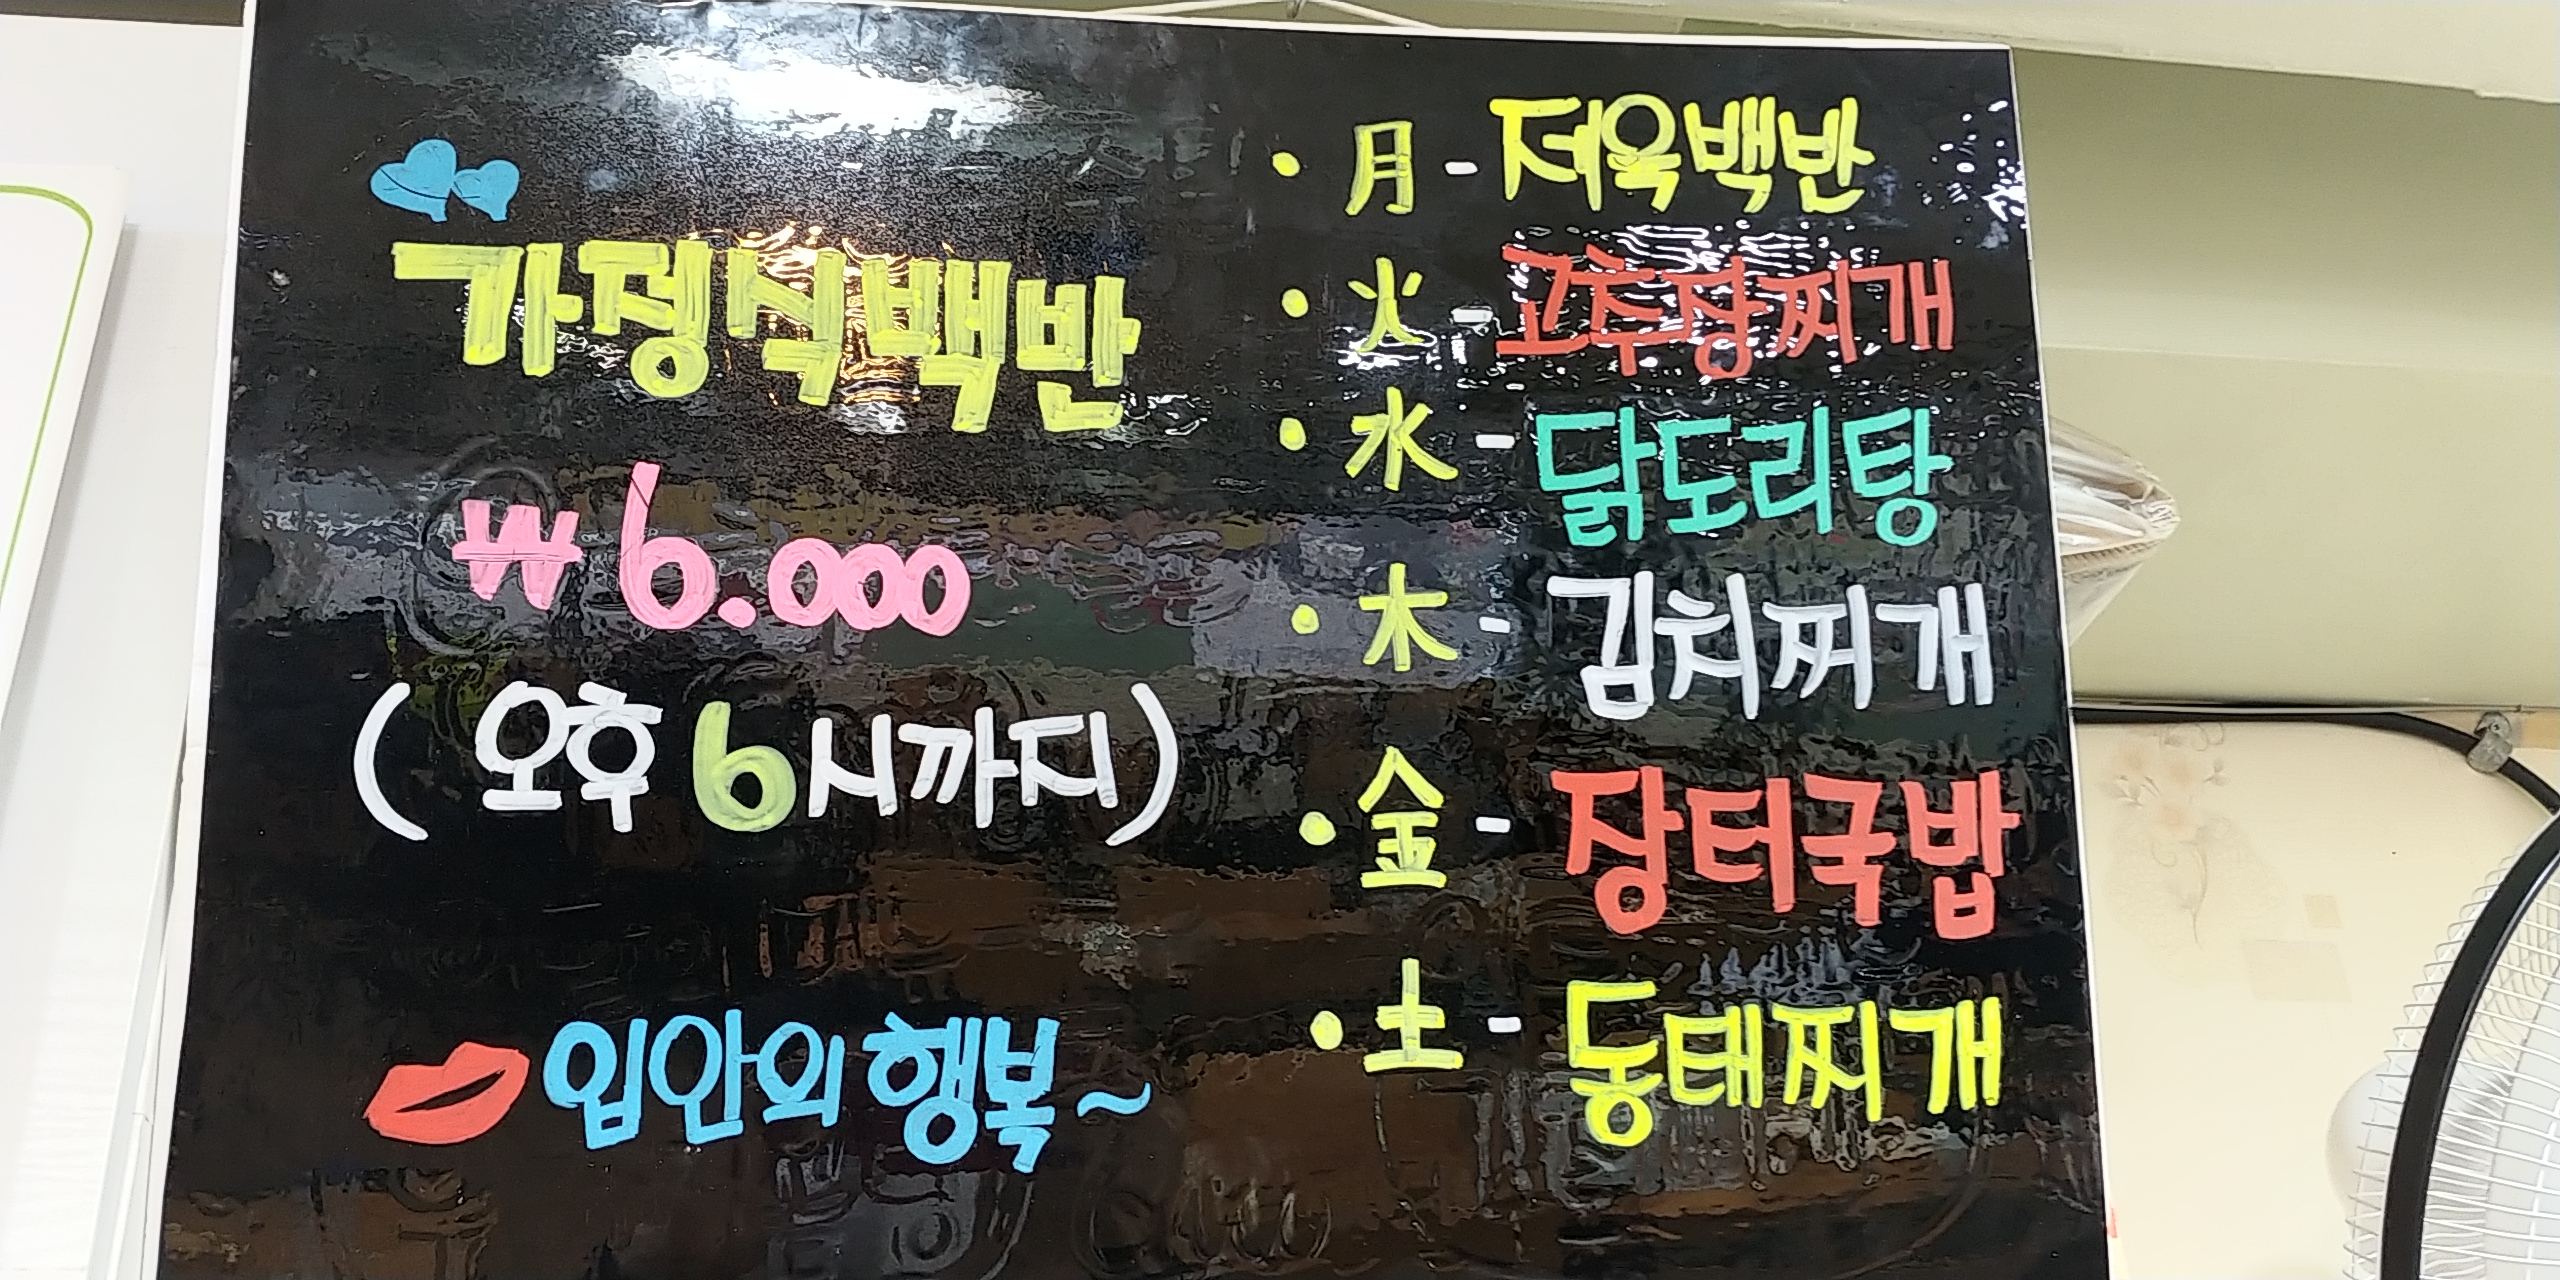 가정식백반
₩6.000
(오후 6시까지)
입안의 행복~
• 月 - 저육백반
• 火 - 고추장찌개
• 水 - 닭도리탕
• 木 - 김치찌개
• 金 - 장터국밥
• 土 - 동태찌개